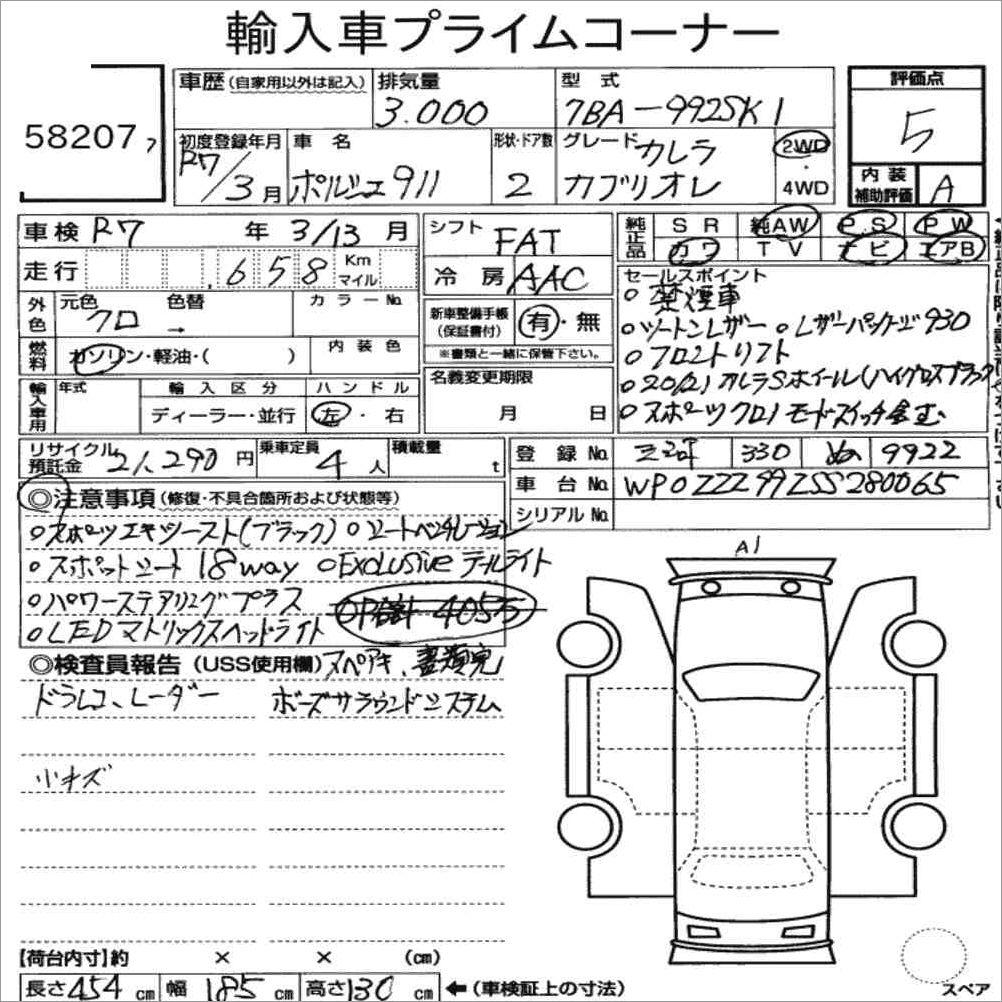 輸入車プライムコーナー
58207
車歴(自家用以外は記入)
排気量
3.000
型式
7BA-992SK1
評価点
5
初度登録年月
R7/3月
車名
ポルシェ911
形状・ドア数
2
グレード
カレラ
カブリオレ
2WD
・
4WD
内装
補助評価
A
車検 R7 年 3/13 月
走行 658 Km マイル
シフト
FAT
冷房 AAC
純正品
SR 純AW PS PW
カワ TV ナビ エアB
外色
元色 クロ
色替 →
カラーNo.
燃料
ガソリン・軽油・( )
内装色
新車整備手帳
(保証書付)
有・無
※書類と一緒に保管下さい。
セールスポイント
○禁煙車
○ツートンレザー ○レザーパッケージ930
○フロントリフト
○20/21カレラSホイール(ハイグロスブラック
○スポーツクロノモードスイッチ含む
輸入車用
年式
輸入区分
ディーラー・並行
ハンドル
左・右
名義変更期限
月 日
リサイクル預託金 21,290円
乗車定員 4人
積載量 t
登録No. 330 ぬ 9922
車台No. WP0ZZZ99ZSS280065
シリアルNo.
◎注意事項(修復・不具合箇所および状態等)
○スポーツエキゾースト(ブラック) ○シートベンチレーション
○スポーツシート18way ○Exclusiveテールライト
○パワーステアリングプラス
OP合計405万
○LEDマトリックスヘッドライト
◎検査員報告(USS使用欄)
スペアキ、書類完
ドラレコ、レーダー
ボーズサラウンドシステム
小キズ
A1
【荷台内寸】約 × × (cm)
長さ454cm 幅185cm 高さ130cm ←(車検証上の寸法)
スペア